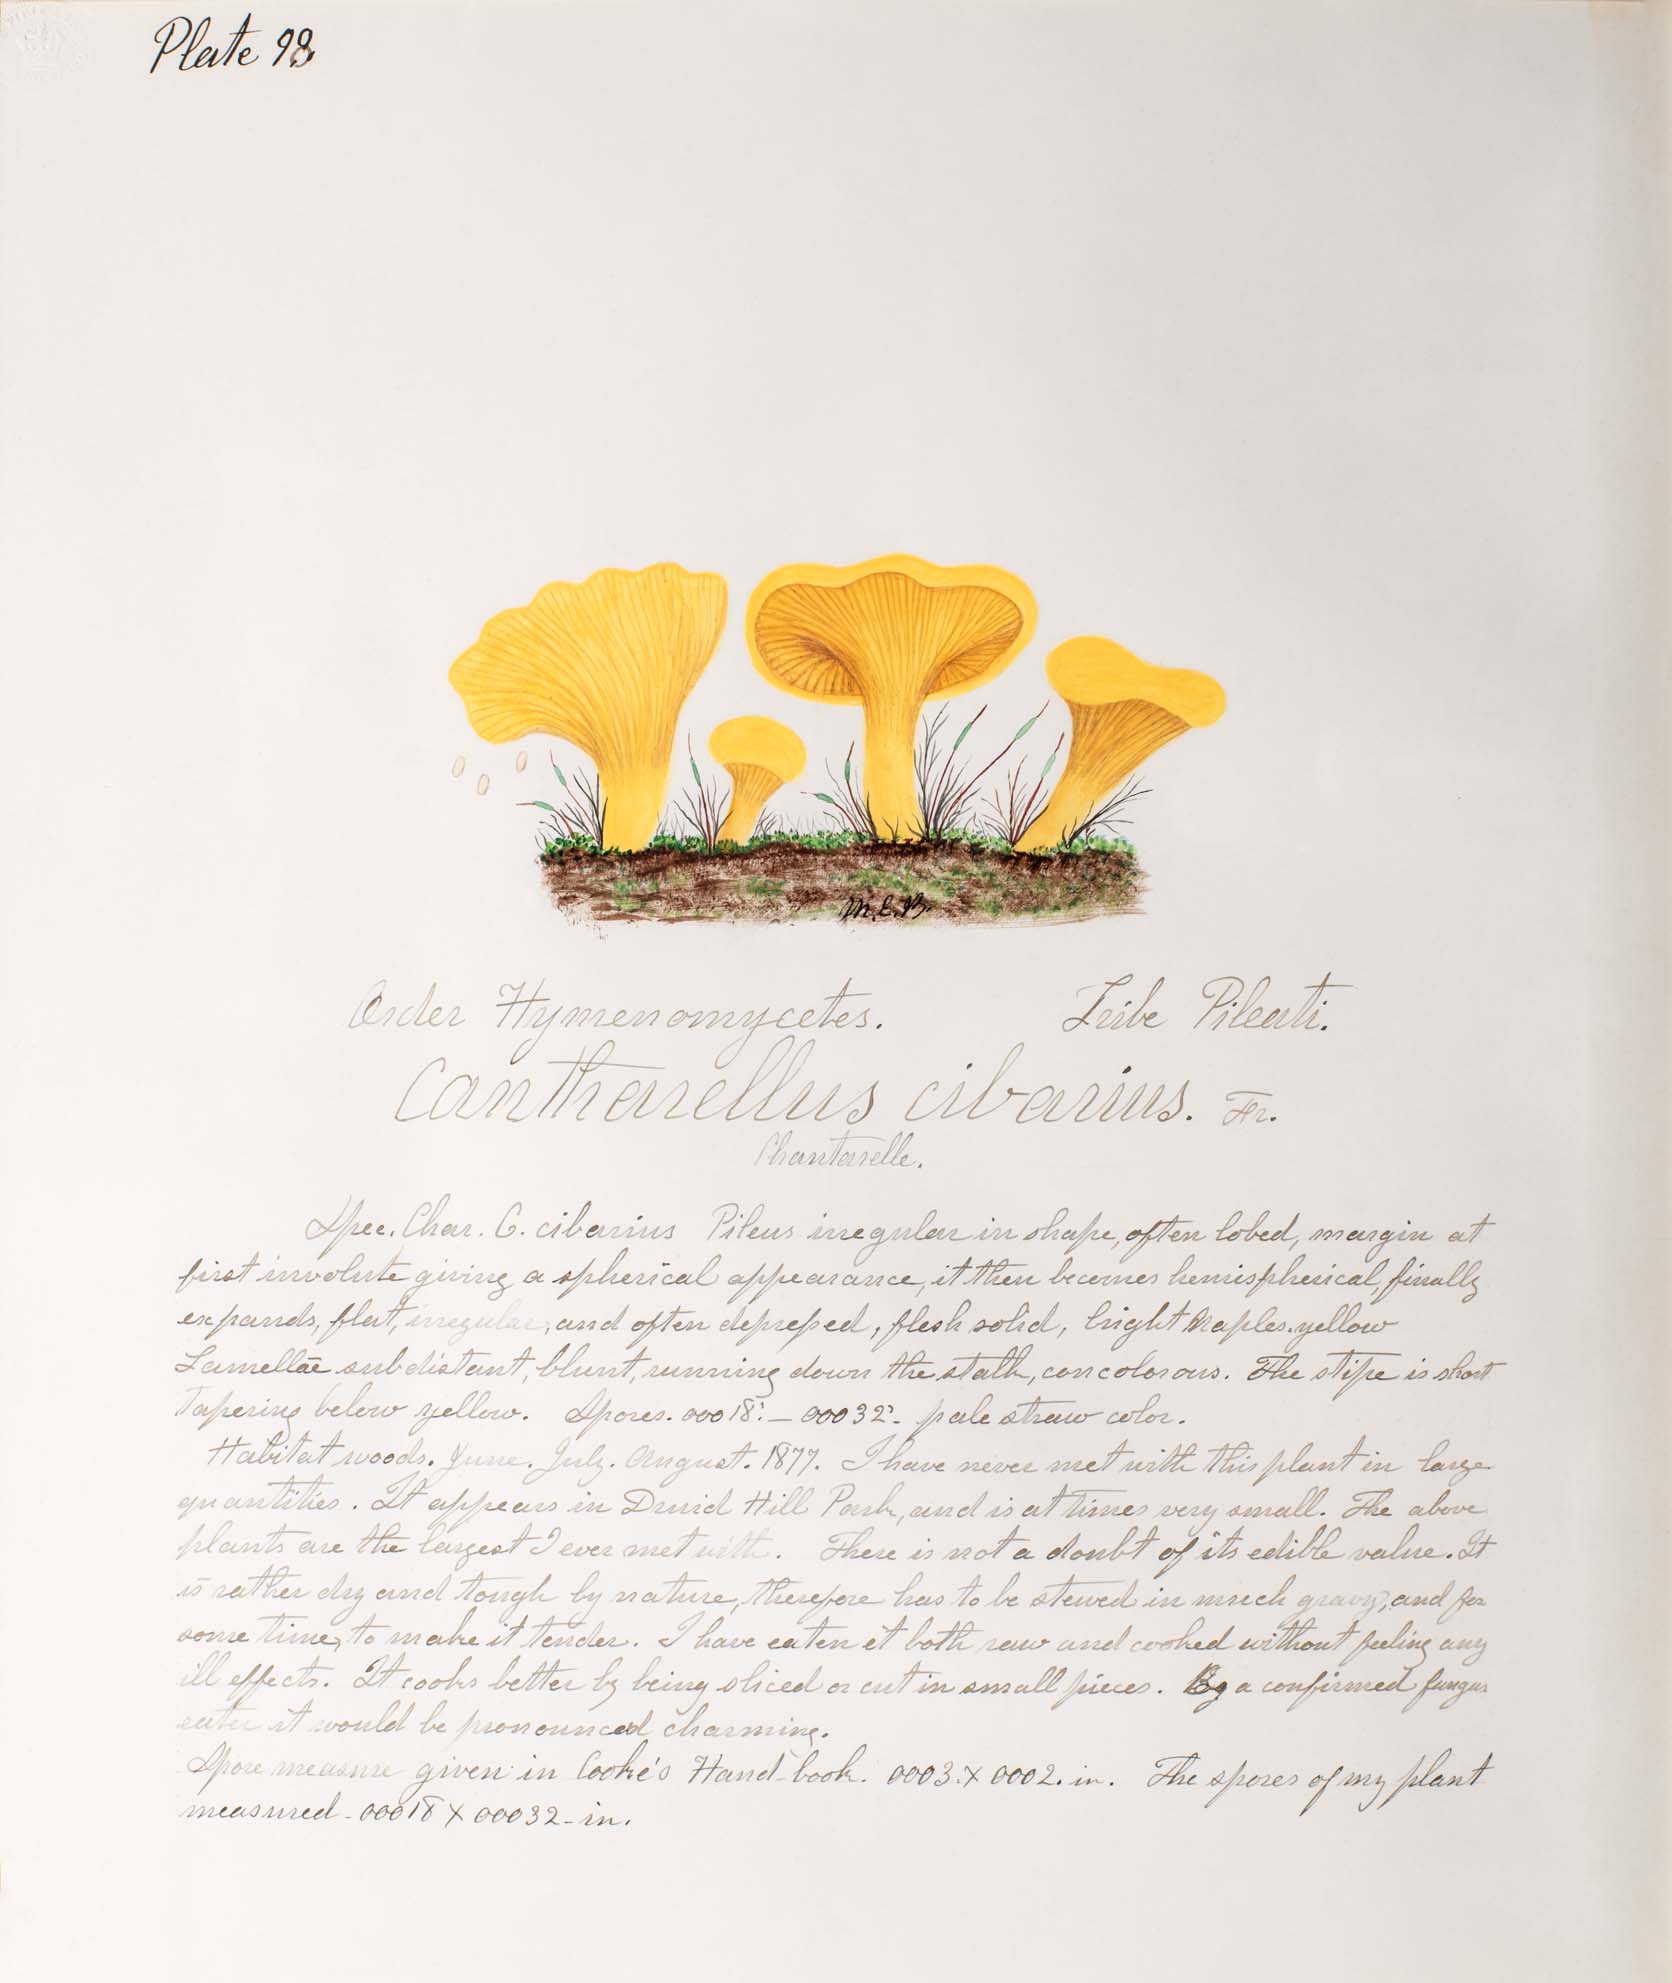 Plate 98
M. E. B.
Order Hymenomycetes. Tribe Pileati.
Cantharellus cibarius. Fr.
Chantarelle.
Spec. Char. C. cibarius Pileus irregular in shape, often lobed, margin at
first involute giving a spherical appearance, it then becomes hemispherical, finally
expands, flat, irregular, and often depressed, flesh solid, bright Naples yellow
Lamellae subdistant, blunt, running down the stalk, concolorous. The stipe is short
Tapering below yellow. Spores. 00018". – 00032". pale straw color.
Habitat woods. June. July. August. 1877. I have never met with this plant in large
quantities. It appears in Druid Hill Park, and is at times very small. The above
plants are the largest I ever met with. There is not a doubt of its edible value. It
is rather dry and tough by nature, therefore has to be stewed in much gravy, and for
some time, to make it tender. I have eaten it both raw and cooked without feeling any
ill effects. It cooks better by being sliced or cut in small pieces. By a confirmed fungus
eater it would be pronounced charming.
Spore measure given in Cooke's Hand-book. 0003. X 0002. in. The spores of my plant
measured - 00018 X 00032 - in.